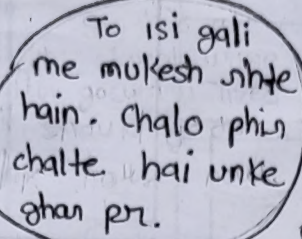 To isi gali
me mukesh rhte
hain. Chalo phir
chalte hai unke
ghar pr.